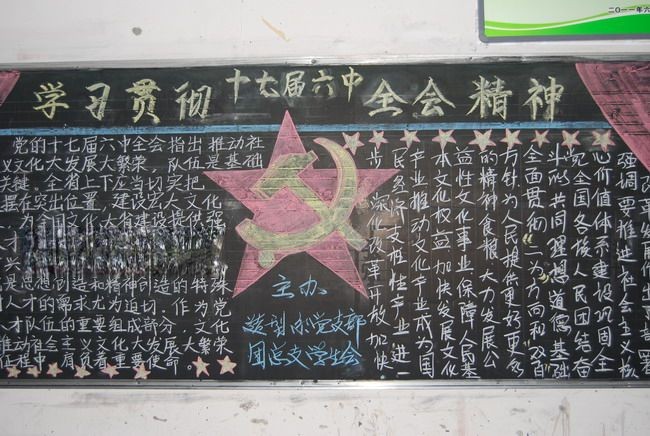 二〇一一年六
学习贯彻 十七届六中 全会精神
党的十七届六中全会指出 推动社
义文化大发展大繁荣 队伍是基础
关键。全省上下应当切实把
摆在突出位置 建设宏大文化
为全国文化 省建设提供强
人才
兴
是思想创造和精神创造的特殊
人才的需求尤为迫切。作为党
人才队伍的重要组成部分,文化
推动社会主义文化大发展大繁荣
征程中 肩负着重要使命。
主办
造型小党支部
团总支学生会
强调要推进社会主义核
心价值体系建设巩固全
党全国各族人民团结奋
斗的共同理想道德基础
全面贯彻"二为"方向和"双百"
方针为人民提供更好更多
的精神食粮 大力发展公
益性文化事业保障人民基
本文化权益加快发展文化
产业推动文化产业成为国
民经济支柱性产业进一
步深化改革开放加快